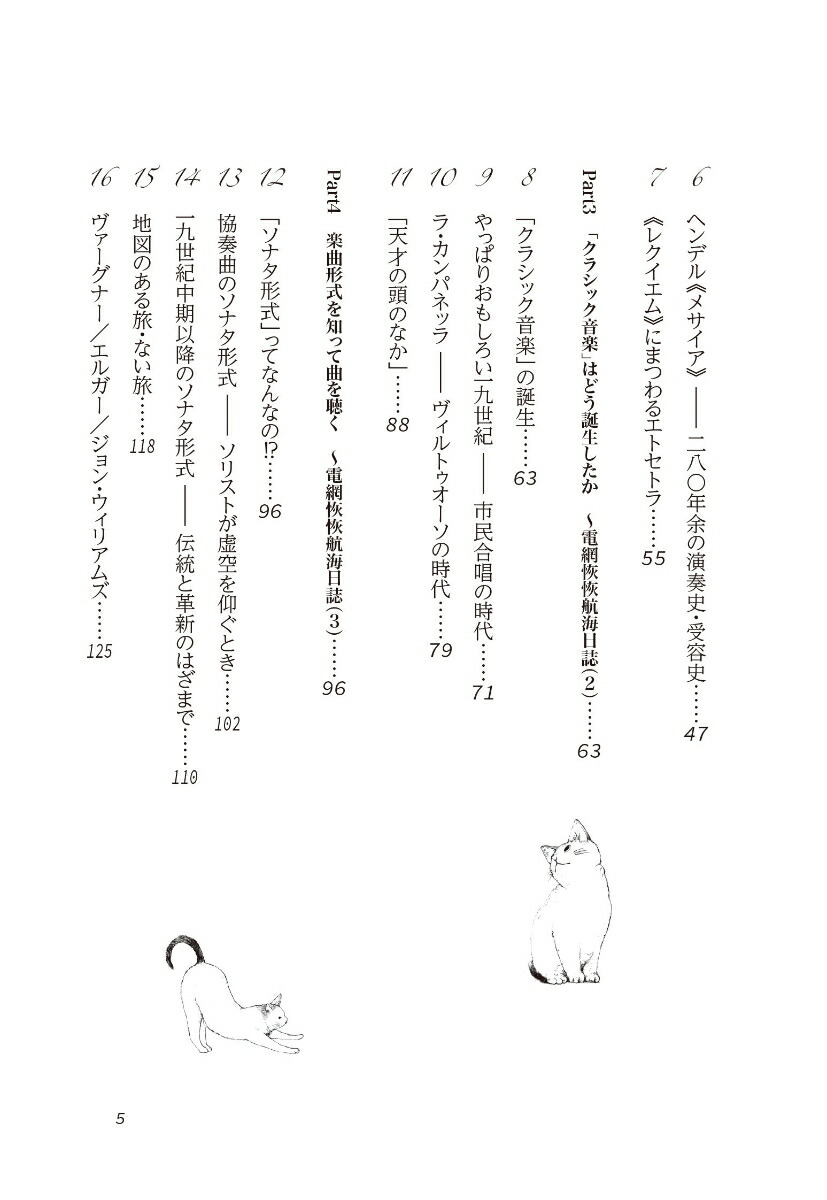 6 ヘンデル《メサイア》――二八〇年余の演奏史・受容史……47
7 《レクイエム》にまつわるエトセトラ……55
Part3 「クラシック音楽」はどう誕生したか ～電網恢恢航海日誌(2)……63
8 「クラシック音楽」の誕生……63
9 やっぱりおもしろい一九世紀――市民合唱の時代……71
10 ラ・カンパネッラ――ヴィルトゥオーソの時代……79
11 「天才の頭のなか」……88
Part4 楽曲形式を知って曲を聴く ～電網恢恢航海日誌(3)……96
12 「ソナタ形式」ってなんなの!?……96
13 協奏曲のソナタ形式――ソリストが虚空を仰ぐとき……102
14 一九世紀中期以降のソナタ形式――伝統と革新のはざまで……110
15 地図のある旅・ない旅……118
16 ヴァーグナー／エルガー／ジョン・ウィリアムズ……125
5